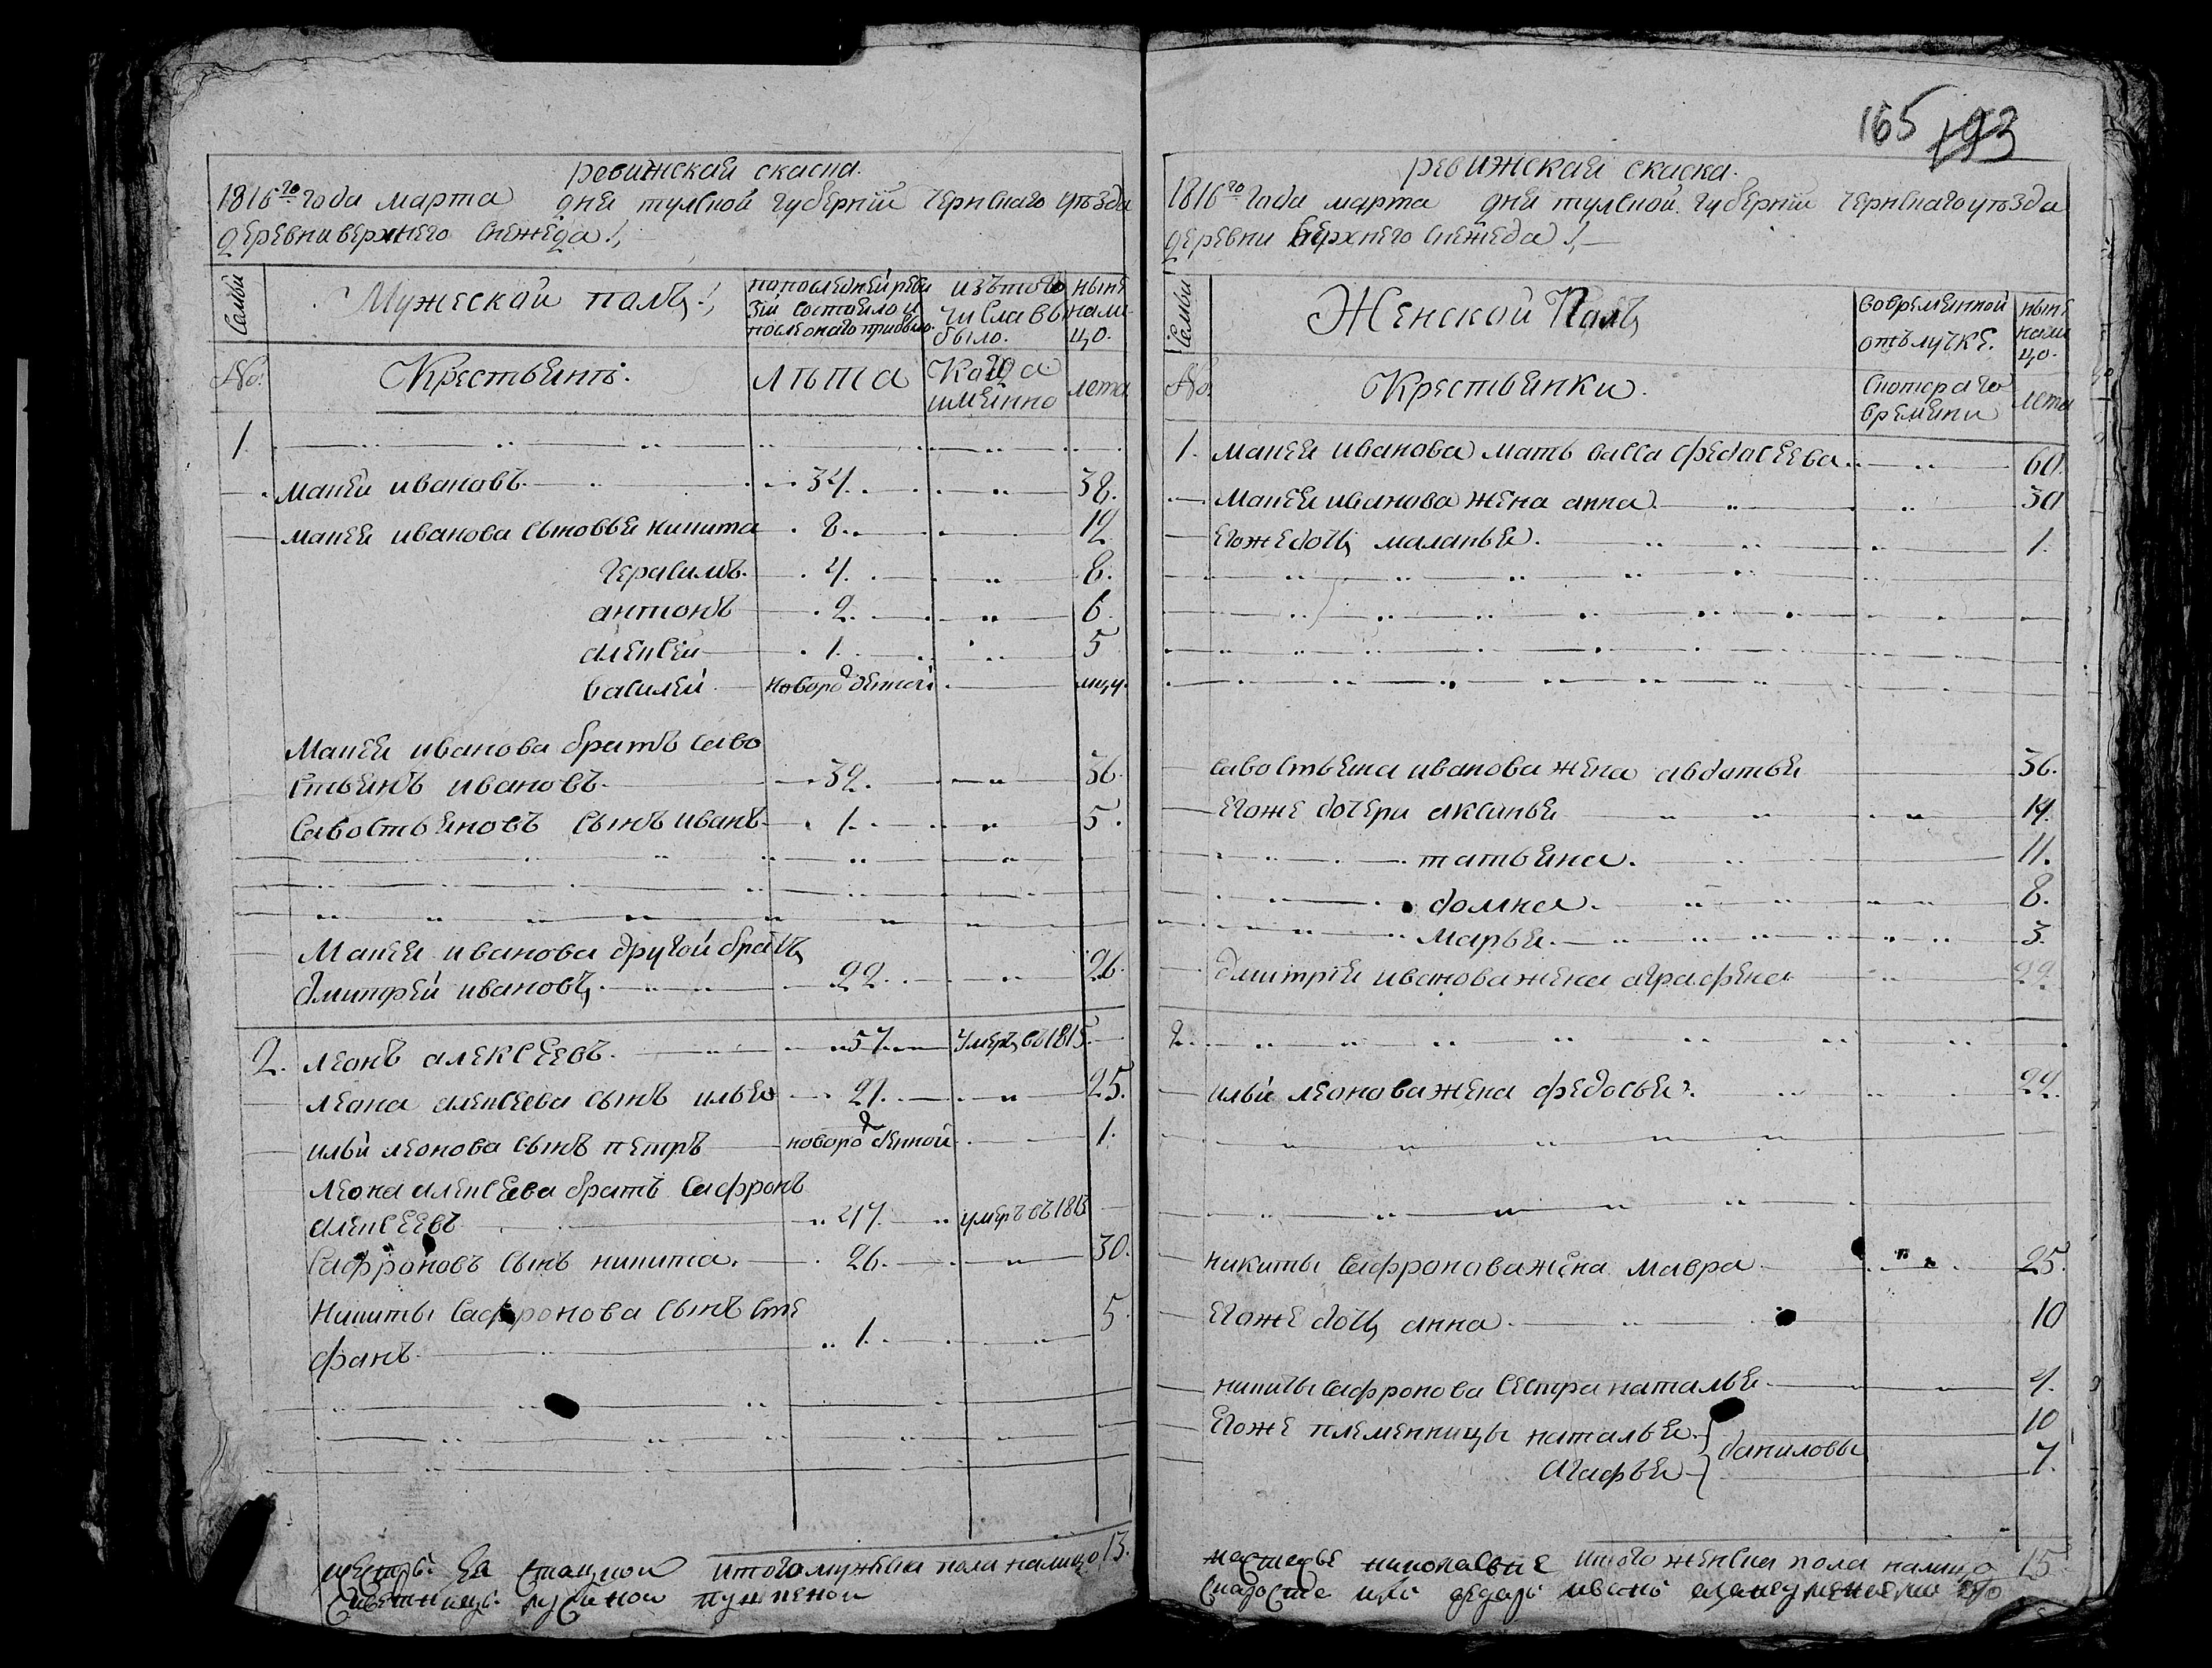 ревижская скаска.
1816го года марта дня тулской губернiи чернскаго уѣзда
деревни верхнего снежеда
Семьи
Мужеской полъ
попоследней реви
зiи состояло и
после онаго прибыло.
изътого
числа вы
было.
нынѣ
нали
цо.
№:
Крестьянѣ.
лѣта
Когда
имянно
лета
1.
макей ивановъ. 34. 38.
макея иванова сыновья никита 8. 12
герасимъ. 4. 8.
антонъ 2. 6.
алексей 1. 5
василей новорожденой
Макея иванова братъ саво
стьянъ ивановъ. 32. 36.
Савостьяновъ сынъ иванъ 1. 5.
Макея иванова другой братъ
дмитрей ивановъ 22. 26.
2. леонъ алексеевъ. 57. умеръ въ 1815.
леона алексеева сынъ илья 21. 25.
ильи леонова сынъ петръ новорожденной 1.
леона алексеева братъ сафронъ
алексеевъ 47. умеръ въ 1813
Сафроновъ сынъ никита. 26. 30.
Никиты сафронова сынъ сте
фанъ 1. 5.
итого мужеска пола налицо 13.
165 193
ревижская скаска.
1816го года марта дня тулской губернiи чернскаго уѣзда
деревни верхнего снежеда
Семьи
Женской Полъ
вовременной
отълучке.
ныне
нали
цо.
№.
Крестьянки.
скоторага
времени
лета
1. макея иванова мать васса федосеева 60.
макея иванова жена анна. 30
егоже дочь маланья. 1.
савостьяна иванова жена авдотья 36.
егоже дочери аксинья 14.
татьяна. 11.
домна. 8.
Марья. 3.
дмитрея иванова жена аграфена 22.
2.
ильи леонова жена федосья. 22.
никиты сафронова жена мавра 25.
егоже дочь анна 10
никиты сафронова сестра наталья 4.
егоже племенницы наталья. даниловы 10
агафья 7.
итого женска пола налицо 15